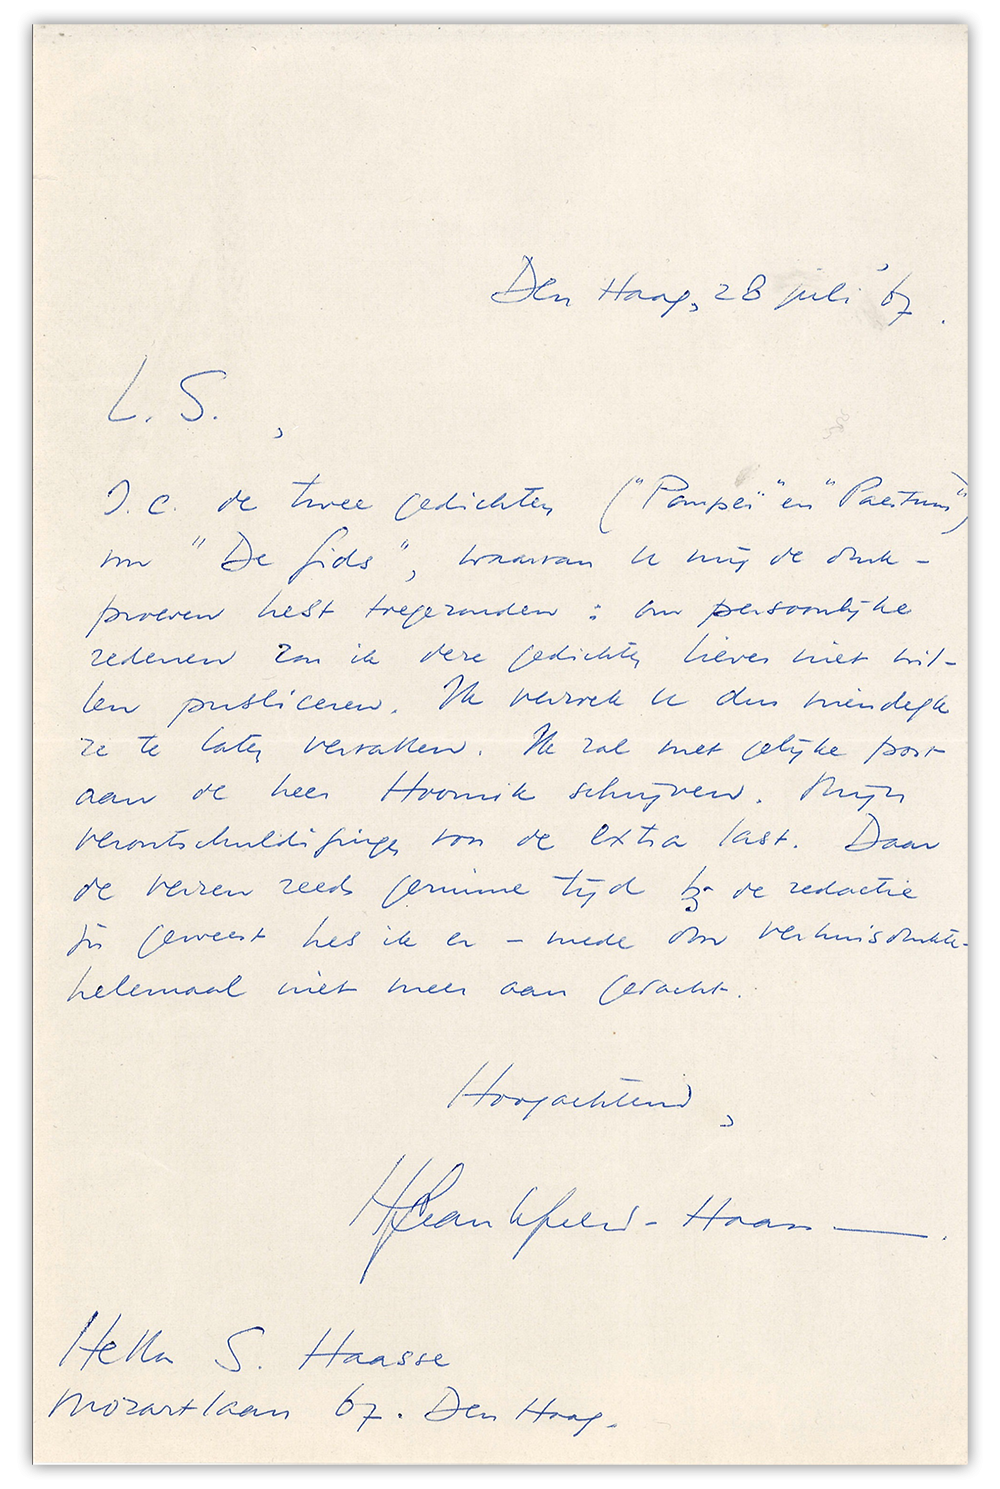 Den Haag, 28 juli '67.
L. S.,
I.c. de twee gedichten ("Pompeï" en "Paestum")
voor "De Gids", waarvan U mij de druk-
proeven hebt toegezonden: om persoonlijke
redenen zou ik deze gedichten liever niet wil-
len publiceren. Ik verzoek U dus vriendelijk
ze te laten vervallen. Ik zal met gelijke post
aan de heer Hoornik schrijven. Mijn
verontschuldigingen voor de extra last. Daar
de verzen reeds geruime tijd bij de redactie
zijn geweest heb ik er – mede door verhuisdrukte–
helemaal niet meer aan gedacht.
Hoogachtend,
Hella S. Haasse
Mozartlaan 67. Den Haag.